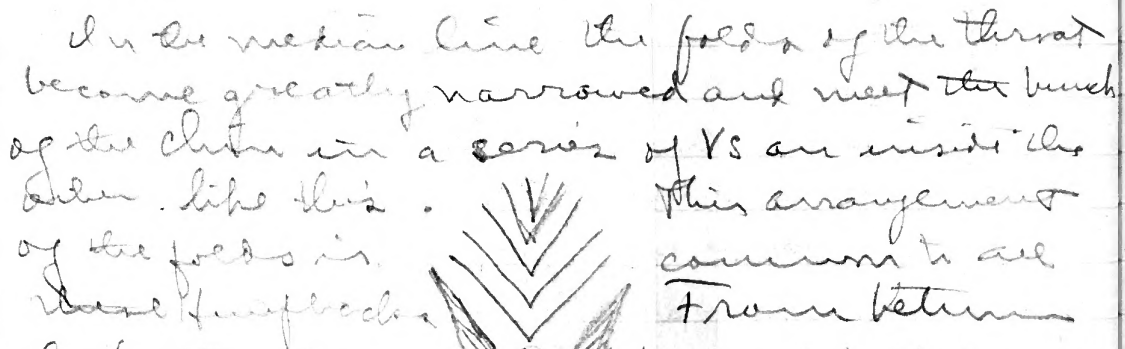 In the median line the folds of the throat
become greatly narrowed and meet the bunch
of the chin in a series of VS one inside the
other. like this. This arrangement
of the folds is common to all
these Humpbacks From between